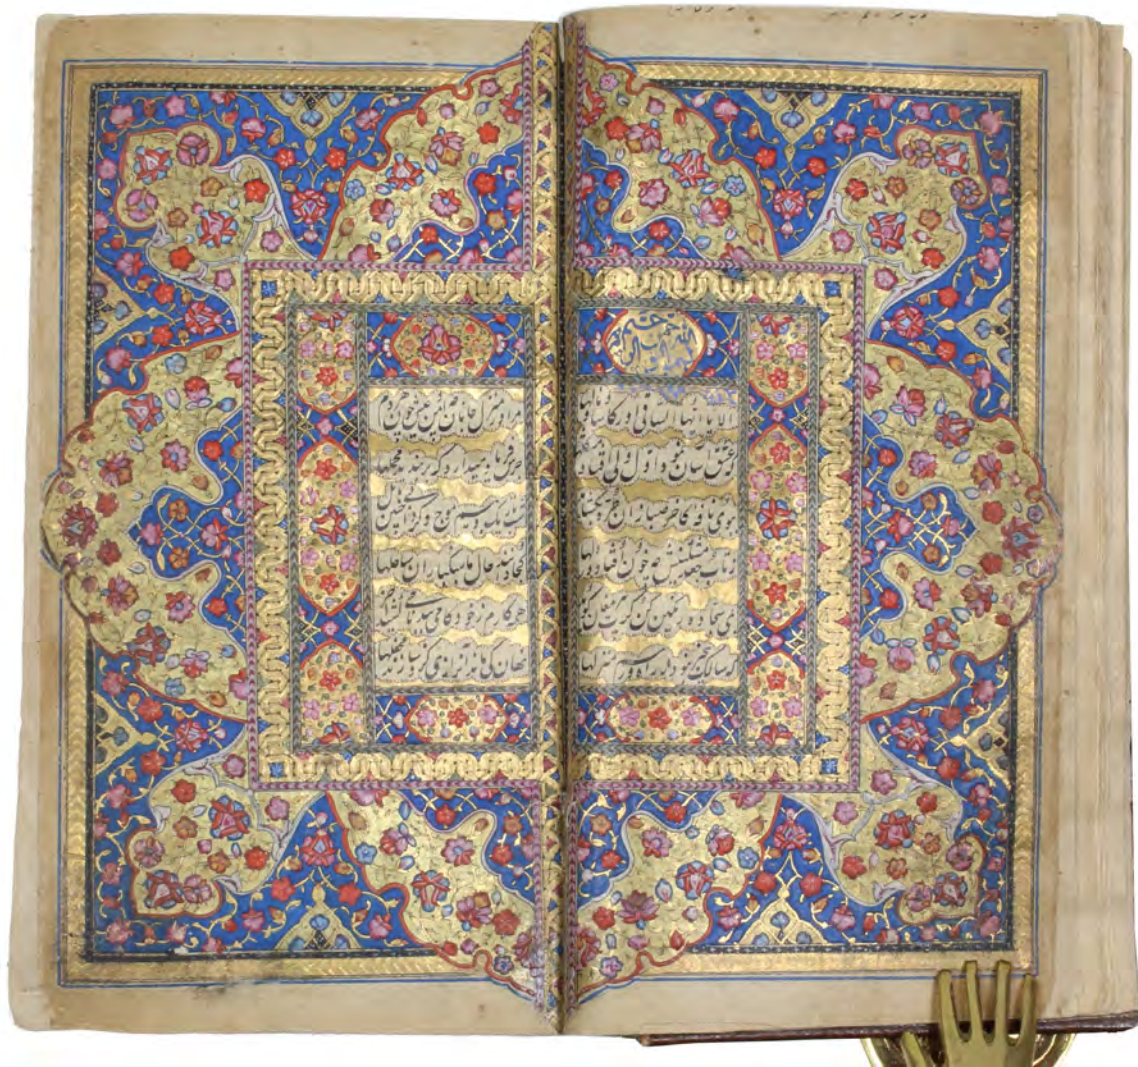 بسم الله الرحمن الرحیم
الا یا ایها الساقی ادر کاسا و ناولها
که عشق اسان نمود اول ولی افتاد
ببوی نافه کاخر صبا زان طره بگشاید
ز تاب جعد مشکینش چه خون افتاد در دلها
بمی سجاده رنگین کن گرت پیر مغان گوید
که سالک بیخبر نبود ز راه و رسم منزلها
مرا در منزل جانان چه امن عیش چون هر دم
جرس فریاد میدارد که بربندید محملها
شب تاریک و بیم موج و گردابی چنین هایل
کجا دانند حال ما سبکباران ساحلها
همه کارم ز خود کامی ببدنامی کشید آخر
نهان کی ماند آن رازی کزو سازند محفلها